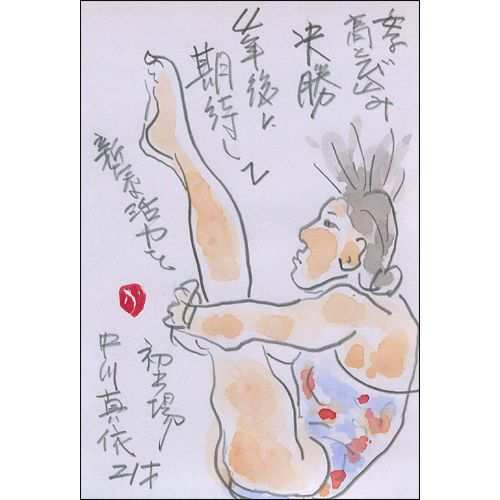 女子
高とび込み
決勝
4年後に
期待して
新たな活力を
初出場
中川真依
21才